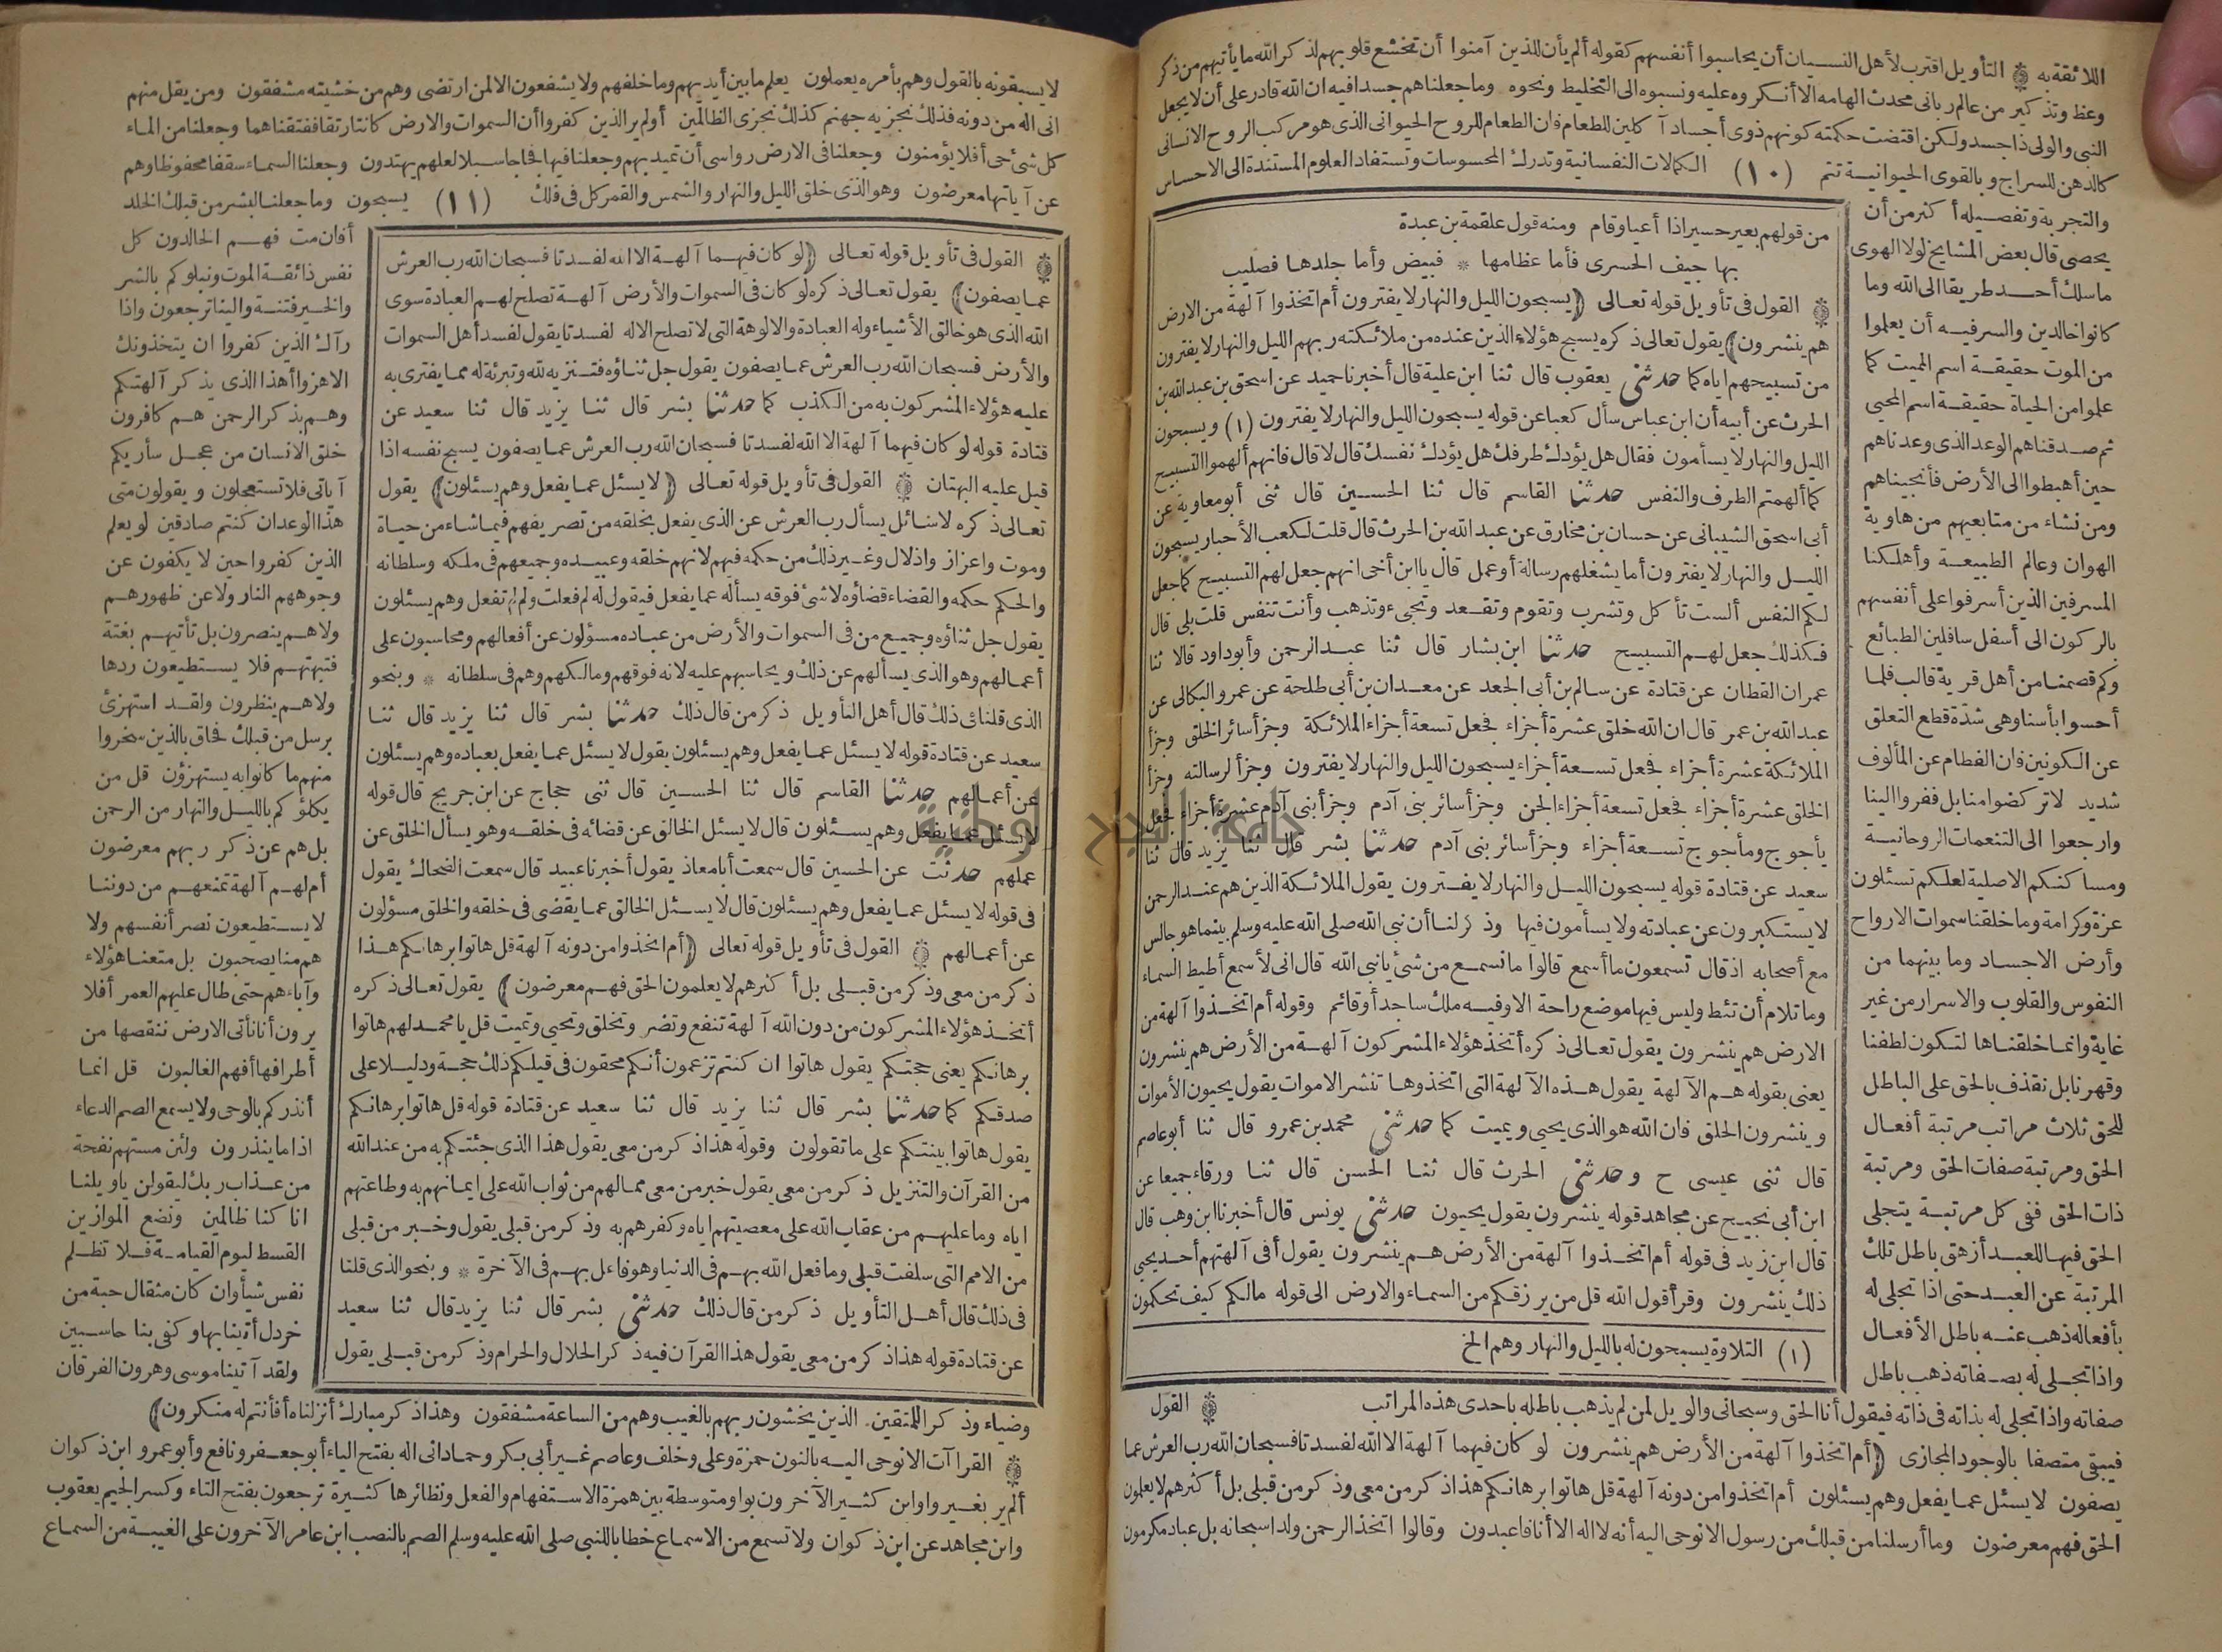 اللائقة به التأويل اقترب لأهل النسيان أن يحاسبوا أنفسهم كقوله ألم يأن للذين آمنوا أن تخشع قلوبهم لذكر الله ما يأتيهم من ذكر
وعظ وتذكير من عالم رباني محدث الهامه الا أنكروه عليه ونسبوه الى التخليط ونحوه وما جعلناهم جسدا فيه ان الله قادر على أن لا يجعل
النبى والولى ذا جسد ولكن اقتضت حكمته كونهم ذوى أجساد آكلين للطعام فان الطعام للروح الحيوانى الذى هو مركب الروح الانسانى
كالدهن للسراج وبالقوى الحيوانية تتم (١٠) الكمالات النفسانية وتدرك المحسوسات وتستفاد العلوم المستندة الى الاحساس
والتجربة وتفصيله أكثر من أن
يحصى قال بعض المشايخ لولا الهوى
ما سلك أحد طريقا الى الله وما
كانوا خالدين والسر فيه أن يعلموا
من الموت حقيقة اسم المميت كما
علموا من الحياة حقيقة اسم المحيى
ثم صدقناهم الوعد الذى وعدناهم
حين أهبطوا الى الأرض فأنجيناهم
ومن نشاء من متابعيهم من هاوية
الهوان وعالم الطبيعة وأهلكنا
المسرفين الذين أسرفوا على أنفسهم
بالركون الى أسفل سافلين الطبائع
وكم قصمنا من أهل قرية قالب فلما
أحسوا بأسنا وهى شدة قطع التعلق
عن الكونين فان الفطام عن المألوف
شديد لا تركضوا منا بل ففروا الينا
وارجعوا الى التنعمات الروحانية
ومساكنكم الاصلية لعلكم تسئلون
عزة وكرامة وما خلقنا سموات الارواح
وأرض الاجساد وما بينهما من
النفوس والقلوب والاسرار من غير
غاية وانما خلقناها لتكون لطفنا
وقهرنا بل نقذف بالحق على الباطل
للحق ثلاث مراتب مرتبة أفعال
الحق ومرتبة صفات الحق ومرتبة
ذات الحق ففى كل مرتبة يتجلى
الحق فيها للعبد أزهق باطل تلك
المرتبة عن العبد حتى اذا تجلى له
بأفعاله ذهب عنه باطل الأفعال
واذا تجلى له بصفاته ذهب باطل
من قولهم بعير حسير اذا أعيا وقام ومنه قول علقمة بن عبدة
بها جيف الحسرى فأما عظامها * فبيض وأما جلدها فصليب
القول فى تأويل قوله تعالى ﴿يسبحون الليل والنهار لا يفترون أم اتخذوا آلهة من الارض
هم ينشرون﴾ يقول تعالى ذكره يسبح هؤلاء الذين عنده من ملائكته ربهم الليل والنهار لا يفترون
من تسبيحهم اياه كما حدثنى يعقوب قال ثنا ابن علية قال أخبرنا حميد عن اسحق بن عبد الله بن
الحرث عن أبيه أن ابن عباس سأل كعبا عن قوله يسبحون الليل والنهار لا يفترون (١) ويسبحون
الليل والنهار لا يسأمون فقال هل يؤدك طرفك هل يؤدك نفسك قال لا قال فانهم ألهموا التسبيح
كما ألهمتم الطرف والنفس حدثنا القاسم قال ثنا الحسين قال ثنى أبو معاوية عن
أبى اسحق الشيبانى عن حسان بن مخارق عن عبد الله بن الحرث قال قلت لكعب الأحبار يسبحون
الليل والنهار لا يفترون أما يشغلهم رسالة أو عمل قال يا ابن أخى انهم جعل لهم التسبيح كما جعل
لكم النفس ألست تأكل وتشرب وتقوم وتقعد وتجىء وتذهب وأنت تنفس قلت بلى قال
فكذلك جعل لهم التسبيح حدثنا ابن بشار قال ثنا عبد الرحمن وأبو داود قالا ثنا
عمران القطان عن قتادة عن سالم بن أبى الجعد عن معدان بن أبى طلحة عن عمرو البكالى عن
عبد الله بن عمر قال ان الله خلق عشرة أجزاء فجعل تسعة أجزاء الملائكة وجزأ سائر الخلق وجزأ
الملائكة عشرة أجزاء فجعل تسعة أجزاء يسبحون الليل والنهار لا يفترون وجزأ لرسالته وجزأ
الخلق عشرة أجزاء فجعل تسعة أجزاء الجن وجزأ سائر بنى آدم وجزأ بنى آدم عشرة أجزاء فجعل
يأجوج ومأجوج تسعة أجزاء وجزأ سائر بنى آدم حدثنا بشر قال ثنا يزيد قال ثنا
سعيد عن قتادة قوله يسبحون الليل والنهار لا يفترون يقول الملائكة الذين هم عند الرحمن
لا يستكبرون عن عبادته ولا يسأمون فيها وذكر لنا أن نبى الله صلى الله عليه وسلم بينما هو جالس
مع أصحابه اذ قال تسمعون ما أسمع قالوا ما نسمع من شئ يا نبى الله قال انى لأسمع أطيط السماء
وما تلام أن تئط وليس فيها موضع راحة الا وفيه ملك ساجد أو قائم وقوله أم اتخذوا آلهة من
الارض هم ينشرون يقول تعالى ذكره أتخذ هؤلاء المشركون آلهة من الأرض هم ينشرون
يعنى بقوله هم الآلهة يقول هذه الآلهة التى اتخذوها تنشر الاموات يقول يحيون الأموات
وينشرون الخلق فان الله هو الذى يحيى ويميت كما حدثنى محمد بن عمرو قال ثنا أبو عاصم
قال ثنى عيسى ح وحدثنى الحرث قال ثنا الحسن قال ثنا ورقاء جميعا عن
ابن أبى نجيح عن مجاهد قوله ينشرون يقول يحيون حدثنى يونس قال أخبرنا ابن وهب قال
قال ابن زيد فى قوله أم اتخذوا آلهة من الأرض هم ينشرون يقول أفى آلهتهم أحد يحيى
ذلك ينشرون وقرأ قول الله قل من يرزقكم من السماء والارض الى قوله مالكم كيف تحكمون
(١) التلاوة يسبحون له بالليل والنهار وهم الخ
صفاته واذا تجلى له بذاته فى ذاته فيقول أنا الحق وسبحانى والويل لمن لم يذهب باطله باحدى هذه المراتب القول
فيبقى متصفا بالوجود المجازى ﴿أم اتخذوا آلهة من الأرض هم ينشرون لو كان فيهما آلهة الا الله لفسدتا فسبحان الله رب العرش عما
يصفون لا يسئل عما يفعل وهم يسئلون أم اتخذوا من دونه آلهة قل هاتوا برهانكم هذا ذكر من معى وذكر من قبلى بل أكثرهم لا يعلمون
الحق فهم معرضون وما أرسلنا من قبلك من رسول الا نوحى اليه أنه لا اله الا أنا فاعبدون وقالوا اتخذ الرحمن ولدا سبحانه بل عباد مكرمون
لا يسبقونه بالقول وهم بأمره يعملون يعلم ما بين أيديهم وما خلفهم ولا يشفعون الا لمن ارتضى وهم من خشيته مشفقون ومن يقل منهم
انى اله من دونه فذلك نجزيه جهنم كذلك نجزى الظالمين أولم ير الذين كفروا أن السموات والارض كانتا رتقا ففتقناهما وجعلنا من الماء
كل شئ حى أفلا يؤمنون وجعلنا فى الارض رواسى أن تميد بهم وجعلنا فيها فجاجا سبلا لعلهم يهتدون وجعلنا السماء سقفا محفوظا وهم
عن آياتها معرضون وهو الذى خلق الليل والنهار والشمس والقمر كل فى فلك (١١) يسبحون وما جعلنا لبشر من قبلك الخلد
القول فى تأويل قوله تعالى ﴿لو كان فيهما آلهة الا الله لفسدتا فسبحان الله رب العرش
عما يصفون﴾ يقول تعالى ذكره لو كان فى السموات والأرض آلهة تصلح لهم العبادة سوى
الله الذى هو خالق الأشياء وله العبادة والالوهة التى لا تصلح الا له لفسدتا يقول لفسد أهل السموات
والأرض فسبحان الله رب العرش عما يصفون يقول جل ثناؤه فتنزيه لله وتبرئة له مما يفترى به
عليه هؤلاء المشركون به من الكذب كما حدثنا بشر قال ثنا يزيد قال ثنا سعيد عن
قتادة قوله لو كان فيهما آلهة الا الله لفسدتا فسبحان الله رب العرش عما يصفون يسبح نفسه اذا
قيل عليه البهتان القول فى تأويل قوله تعالى ﴿لا يسئل عما يفعل وهم يسئلون﴾ يقول
تعالى ذكره لا سائل يسأل رب العرش عن الذى يفعل بخلقه من تصريفهم فيما شاء من حياة
وموت واعزاز واذلال وغير ذلك من حكمه فيهم لانهم خلقه وعبيده وجميعهم فى ملكه وسلطانه
والحكم حكمه والقضاء قضاؤه لا شئ فوقه يسأله عما يفعل فيقول له لم فعلت ولم لم تفعل وهم يسئلون
يقول جل ثناؤه وجميع من فى السموات والأرض من عباده مسؤلون عن أفعالهم ومحاسبون على
أعمالهم وهو الذى يسألهم عن ذلك ويحاسبهم عليه لانه فوقهم ومالكهم وهم فى سلطانه * وبنحو
الذى قلنا فى ذلك قال أهل التأويل ذكر من قال ذلك حدثنا بشر قال ثنا يزيد قال ثنا
سعيد عن قتادة قوله لا يسئل عما يفعل وهم يسئلون يقول لا يسئل عما يفعل بعباده وهم يسئلون
عن أعمالهم حدثنا القاسم قال ثنا الحسين قال ثنى حجاج عن ابن جريج قال قوله
لا يسئل عما يفعل وهم يسئلون قال لا يسئل الخالق عن قضائه فى خلقه وهو يسأل الخلق عن
عملهم حدثت عن الحسين قال سمعت أبا معاذ يقول أخبرنا عبيد قال سمعت الضحاك يقول
فى قوله لا يسئل عما يفعل وهم يسئلون قال لا يسئل الخالق عما يقضى فى خلقه والخلق مسؤلون
عن أعمالهم القول فى تأويل قوله تعالى ﴿أم اتخذوا من دونه آلهة قل هاتوا برهانكم هذا
ذكر من معى وذكر من قبلى بل أكثرهم لا يعلمون الحق فهم معرضون﴾ يقول تعالى ذكره
أتخذ هؤلاء المشركون من دون الله آلهة تنفع وتضر وتخلق وتحيى وتميت قل يا محمد لهم هاتوا
برهانكم يعنى حجتكم يقول هاتوا ان كنتم تزعمون أنكم محقون فى قيلكم ذلك حجة ودليلا على
صدقكم كما حدثنا بشر قال ثنا يزيد قال ثنا سعيد عن قتادة قوله قل هاتوا برهانكم
يقول هاتوا بينتكم على ما تقولون وقوله هذا ذكر من معى يقول هذا الذى جئتكم به من عند الله
من القرآن والتنزيل ذكر من معى يقول خبر من معى مما لهم من ثواب الله على ايمانهم به وطاعتهم
اياه وما عليهم من عقاب الله على معصيتهم اياه وكفرهم به وذكر من قبلى يقول وخبر من قبلى
من الامم التى سلفت قبلى وما فعل الله بهم فى الدنيا وهو فاعل بهم فى الآخرة * وبنحو الذى قلنا
فى ذلك قال أهل التأويل ذكر من قال ذلك حدثنى بشر قال ثنا يزيد قال ثنا سعيد
عن قتادة قوله هذا ذكر من معى يقول هذا القرآن فيه ذكر الحلال والحرام وذكر من قبلى يقول
أفان مت فهم الخالدون كل
نفس ذائقة الموت ونبلوكم بالشر
والخير فتنة والينا ترجعون واذا
رآك الذين كفروا ان يتخذونك
الا هزوا أهذا الذى يذكر آلهتكم
وهم بذكر الرحمن هم كافرون
خلق الانسان من عجل سأريكم
آياتى فلا تستعجلون ويقولون متى
هذا الوعد ان كنتم صادقين لو يعلم
الذين كفروا حين لا يكفون عن
وجوههم النار ولا عن ظهورهم
ولا هم ينصرون بل تأتيهم بغتة
فتبهتهم فلا يستطيعون ردها
ولا هم ينظرون ولقد استهزئ
برسل من قبلك فحاق بالذين سخروا
منهم ما كانوا به يستهزؤن قل من
يكلؤكم بالليل والنهار من الرحمن
بل هم عن ذكر ربهم معرضون
أم لهم آلهة تمنعهم من دوننا
لا يستطيعون نصر أنفسهم ولا
هم منا يصحبون بل متعنا هؤلاء
وآباءهم حتى طال عليهم العمر أفلا
يرون أنا نأتى الارض ننقصها من
أطرافها أفهم الغالبون قل انما
أنذركم بالوحى ولا يسمع الصم الدعاء
اذا ما ينذرون ولئن مستهم نفحة
من عذاب ربك ليقولن يا ويلنا
انا كنا ظالمين ونضع الموازين
القسط ليوم القيامة فلا تظلم
نفس شيأ وان كان مثقال حبة من
خردل أتينا بها وكفى بنا حاسبين
ولقد آتينا موسى وهرون الفرقان
وضياء وذكرا للمتقين الذين يخشون ربهم بالغيب وهم من الساعة مشفقون وهذا ذكر مبارك أنزلناه أفأنتم له منكرون﴾
القراآت الا نوحى اليه بالنون حمزة وعلى وخلف وعاصم غير أبى بكر وحماد انى اله بفتح الياء أبو جعفر ونافع وأبو عمرو ابن ذكوان
ألم ير بغير واو ابن كثير الآخرون بواو متوسطة بين همزة الاستفهام والفعل ونظائرها كثيرة ترجعون بفتح التاء وكسر الجيم يعقوب
وابن مجاهد عن ابن ذكوان ولا تسمع من الاسماع خطابا للنبى صلى الله عليه وسلم الصم بالنصب ابن عامر الآخرون على الغيبة من السماع
جامعة النجاح الوطنية